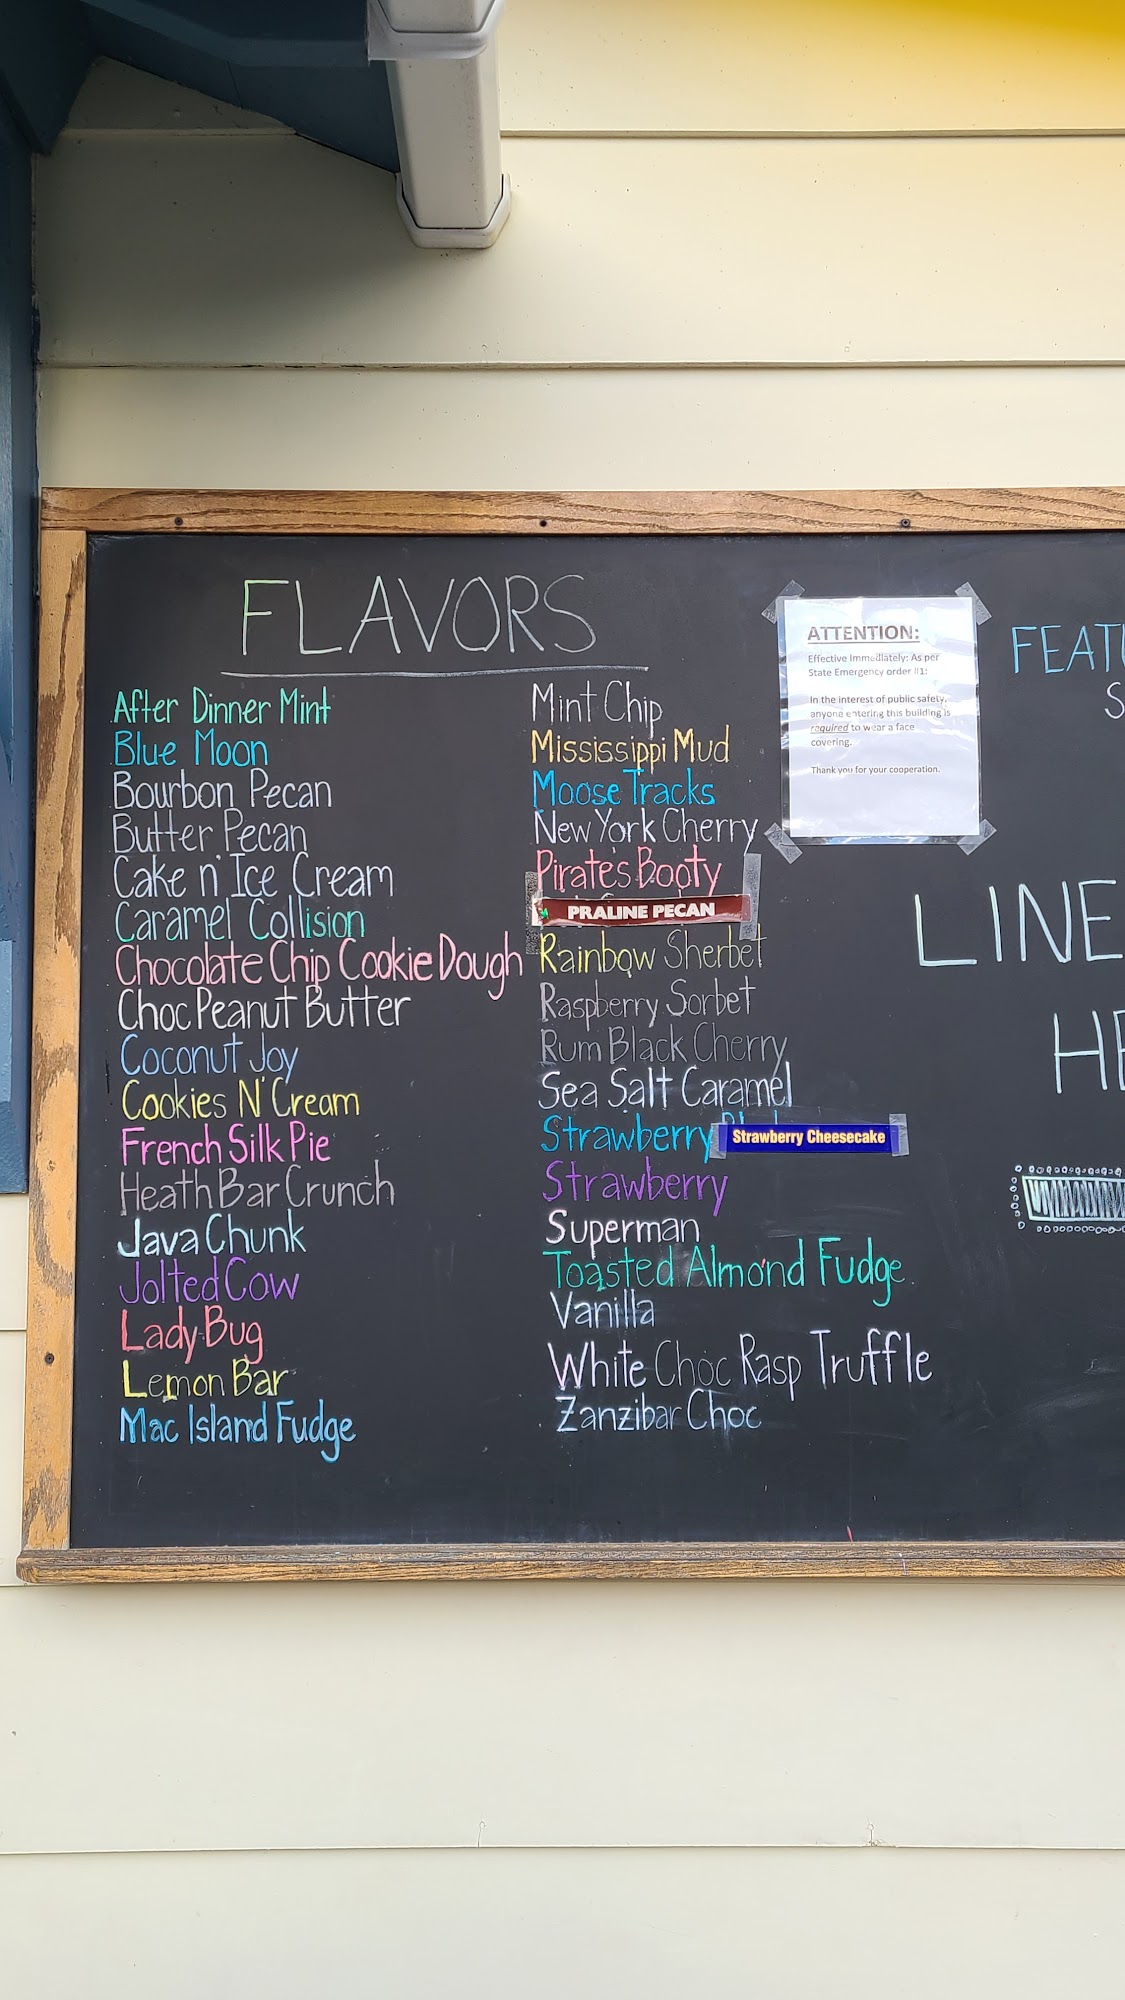 FLAVORS
After Dinner Mint
Blue Moon
Bourbon Pecan
Butter Pecan
Cake n' Ice Cream
Caramel Collision
Chocolate Chip Cookie Dough
Choc Peanut Butter
Coconut Joy
Cookies N' Cream
French Silk Pie
Heath Bar Crunch
Java Chunk
Jolted Cow
Lady Bug
Lemon Bar
Mac Island Fudge
Mint Chip
Mississippi Mud
Moose Tracks
New York Cherry
Pirate's Booty
PRALINE PECAN
Rainbow Sherbet
Raspberry Sorbet
Rum Black Cherry
Sea Salt Caramel
Strawberry Strawberry Cheesecake
Strawberry
Superman
Toasted Almond Fudge
Vanilla
White Choc Rasp Truffle
Zanzibar Choc
ATTENTION:
Effective Immediately: As per
State Emergency order #1:
In the interest of public safety,
anyone entering this building is
required to wear a face
covering.
Thank you for your cooperation.
FEAT
S
LINE
HE